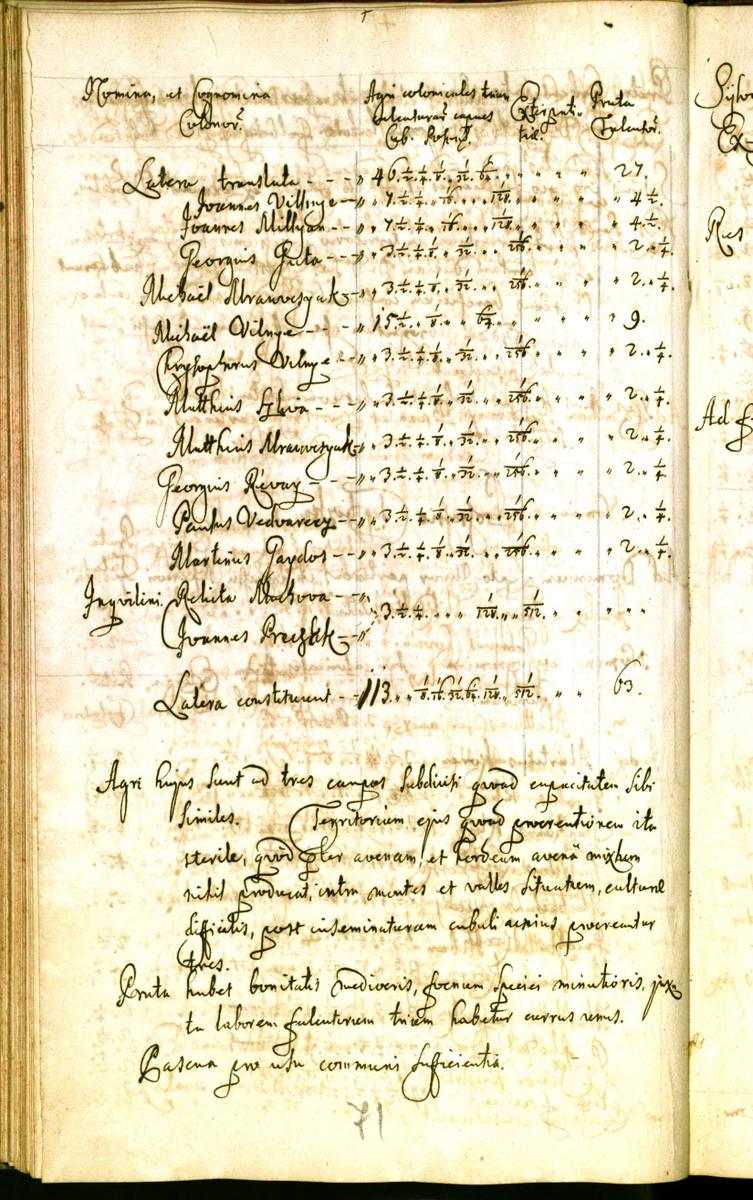 Nomina, et Cognomina Colonor. Agri colonicales trium calcaturar. capaces Cub. Poson. Extirpati- tii. Prata Falcator.
Latera translata - - - „ 46. ½. ¼. ⅛. „ 1/32. 1/64. „ „ „ „ 27.
Joannes Villnye - „ „ 7. ½. „ „ 1/16. „ „ 1/128. „ „ „ „ 4 ½.
Joannes Millyan - - „ „ 7. ½. „ „ 1/16. „ „ 1/128. „ „ „ „ 4. ½.
Georgius Huta - - - „ „ 3. ½. ¼. ⅛. „ 1/32. „ „ 1/256. „ „ „ „ 2. „ ¼.
Michaël Mrawczyak - „ „ 3. ½. ¼. ⅛. „ 1/32. „ „ 1/256. „ „ „ „ 2. „ ¼.
Michaël Vilnye - - - „ 15. ½. „ ⅛. „ „ 1/64. „ „ „ „ „ 9.
Chrystophorus Vilnye - - „ „ 3. ½. ¼. ⅛. „ 1/32. „ „ 1/256. „ „ „ „ 2. „ ¼.
Matthias Sylwa - - - „ „ 3. ½. ¼. ⅛. „ 1/32. „ „ 1/256. „ „ „ „ 2. „ ¼.
Matthias Mrawczyak - „ „ 3. ½. ¼. ⅛. „ 1/32. „ „ 1/256. „ „ „ „ 2. „ ¼.
Georgius Révay - - - „ „ 3. ½. ¼. ⅛. „ 1/32. „ „ 1/256. „ „ „ „ 2. „ ¼.
Paulus Vedvarczy - - „ „ 3. ½. ¼. ⅛. „ 1/32. „ „ 1/256. „ „ „ „ 2. „ ¼.
Martinus Gaydos - - „ „ 3. ½. ¼. ⅛. „ 1/32. „ „ 1/256. „ „ „ „ 2. „ ¼.
Inqvilini. Relicta Mochova - - „
Joannes - - „ 3. ½. ¼. „ „ „ „ 1/128. „ 1/512. „ „ „ „ „
Latera constituunt - - 113. „ „ ⅛. 1/16. 1/32. 1/64. 1/128. „ 1/512. „ „ 63.
Agri hujus sunt ad tres campos subdivisi qvoad capacitatem sibi
similes. Territorium ejus qvoad procreationem ita
sterile, qvod praeter avenam, et hordeum avenâ mixtum
nihil producat, intra montes et valles situatum, culturae
difficilis, post inseminaturam cubuli acnius procreantur
tres.
Prata habet bonitatis mediocris, foenum speciei minutioris, jux-
ta laborem falcatorum trium habetur currus unus.
Pascua pro usu communi sufficientia.
71